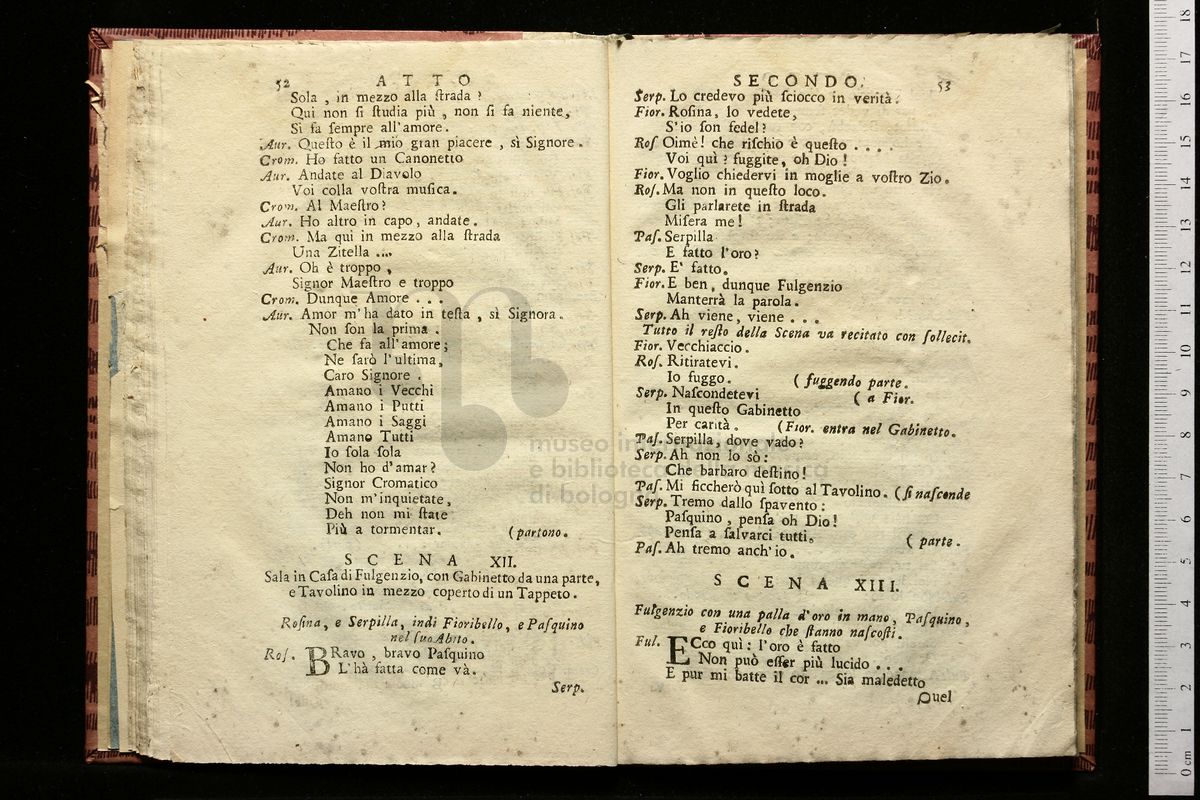 52 ATTO
Sola , in mezzo alla ſtrada ?
Qui non ſi ſtudia più , non ſi fa niente,
Si fa ſempre all'amore.
Aur. Queſto è il mio gran piacere , sì Signore .
Crom. Ho fatto un Canonetto
Aur. Andate al Diavolo
Voi colla voſtra muſica.
Crom. Al Maeſtro?
Aur. Ho altro in capo, andate.
Crom. Ma qui in mezzo alla ſtrada
Una Zitella ....
Aur. Oh è troppo ,
Signor Maeſtro e troppo
Crom. Dunque Amore . . .
Aur. Amor m'ha dato in teſta , sì Signora .
Non ſon la prima .
Che fa all'amore;
Ne ſarò l'ultima,
Caro Signore .
Amano i Vecchi
Amano i Putti
Amano i Saggi
Amano Tutti
Io ſola ſola
Non ho d'amar?
Signor Cromatico
Non m'inquietate,
Deh non mi ſtate
Più a tormentar. (partono.
SCENA XII.
Sala in Caſa di Fulgenzio, con Gabinetto da una parte,
e Tavolino in mezzo coperto di un Tappeto.
Roſina, e Serpilla, indi Fioribello, e Paſquino
nel ſuo Abito.
Roſ. BRavo , bravo Paſquino
L'hà fatta come và.
Serp.
SECONDO. 53
Serp. Lo credevo più ſciocco in verità.
Fior. Roſina, lo vedete,
S'io ſon fedel?
Roſ Oimè! che riſchio è queſto . . . .
Voi quì ? fuggite, oh Dio !
Fior. Voglio chiedervi in moglie a voſtro Zio.
Roſ. Ma non in queſto loco.
Gli parlarete in ſtrada
Miſera me!
Paſ. Serpilla
E fatto l'oro?
Serp. E' fatto.
Fior. E ben, dunque Fulgenzio
Manterrà la parola.
Serp. Ah viene, viene . . .
Tutto il reſto della Scena va recitato con ſollecit.
Fior. Vecchiaccio.
Roſ. Ritiratevi.
Io fuggo. ( fuggendo parte.
Serp. Naſcondetevi ( a Fior.
In queſto Gabinetto
Per carità. (Fior. entra nel Gabinetto.
Paſ. Serpilla, dove vado?
Serp. Ah non lo sò:
Che barbaro deſtino!
Paſ. Mi ficcherò quì ſotto al Tavolino. (ſi naſconde
Serp. Tremo dallo ſpavento:
Paſquino , penſa oh Dio!
Penſa a ſalvarci tutti. ( parte.
Paſ. Ah tremo anch'io.
SCENA XIII.
Fulgenzio con una palla d'oro in mano, Paſquino,
e Fioribello che ſtanno naſcoſti.
Ful. ECco quì: l'oro è fatto
Non può eſſer più lucido . . .
E pur mi batte il cor ... Sia maledetto
Quel